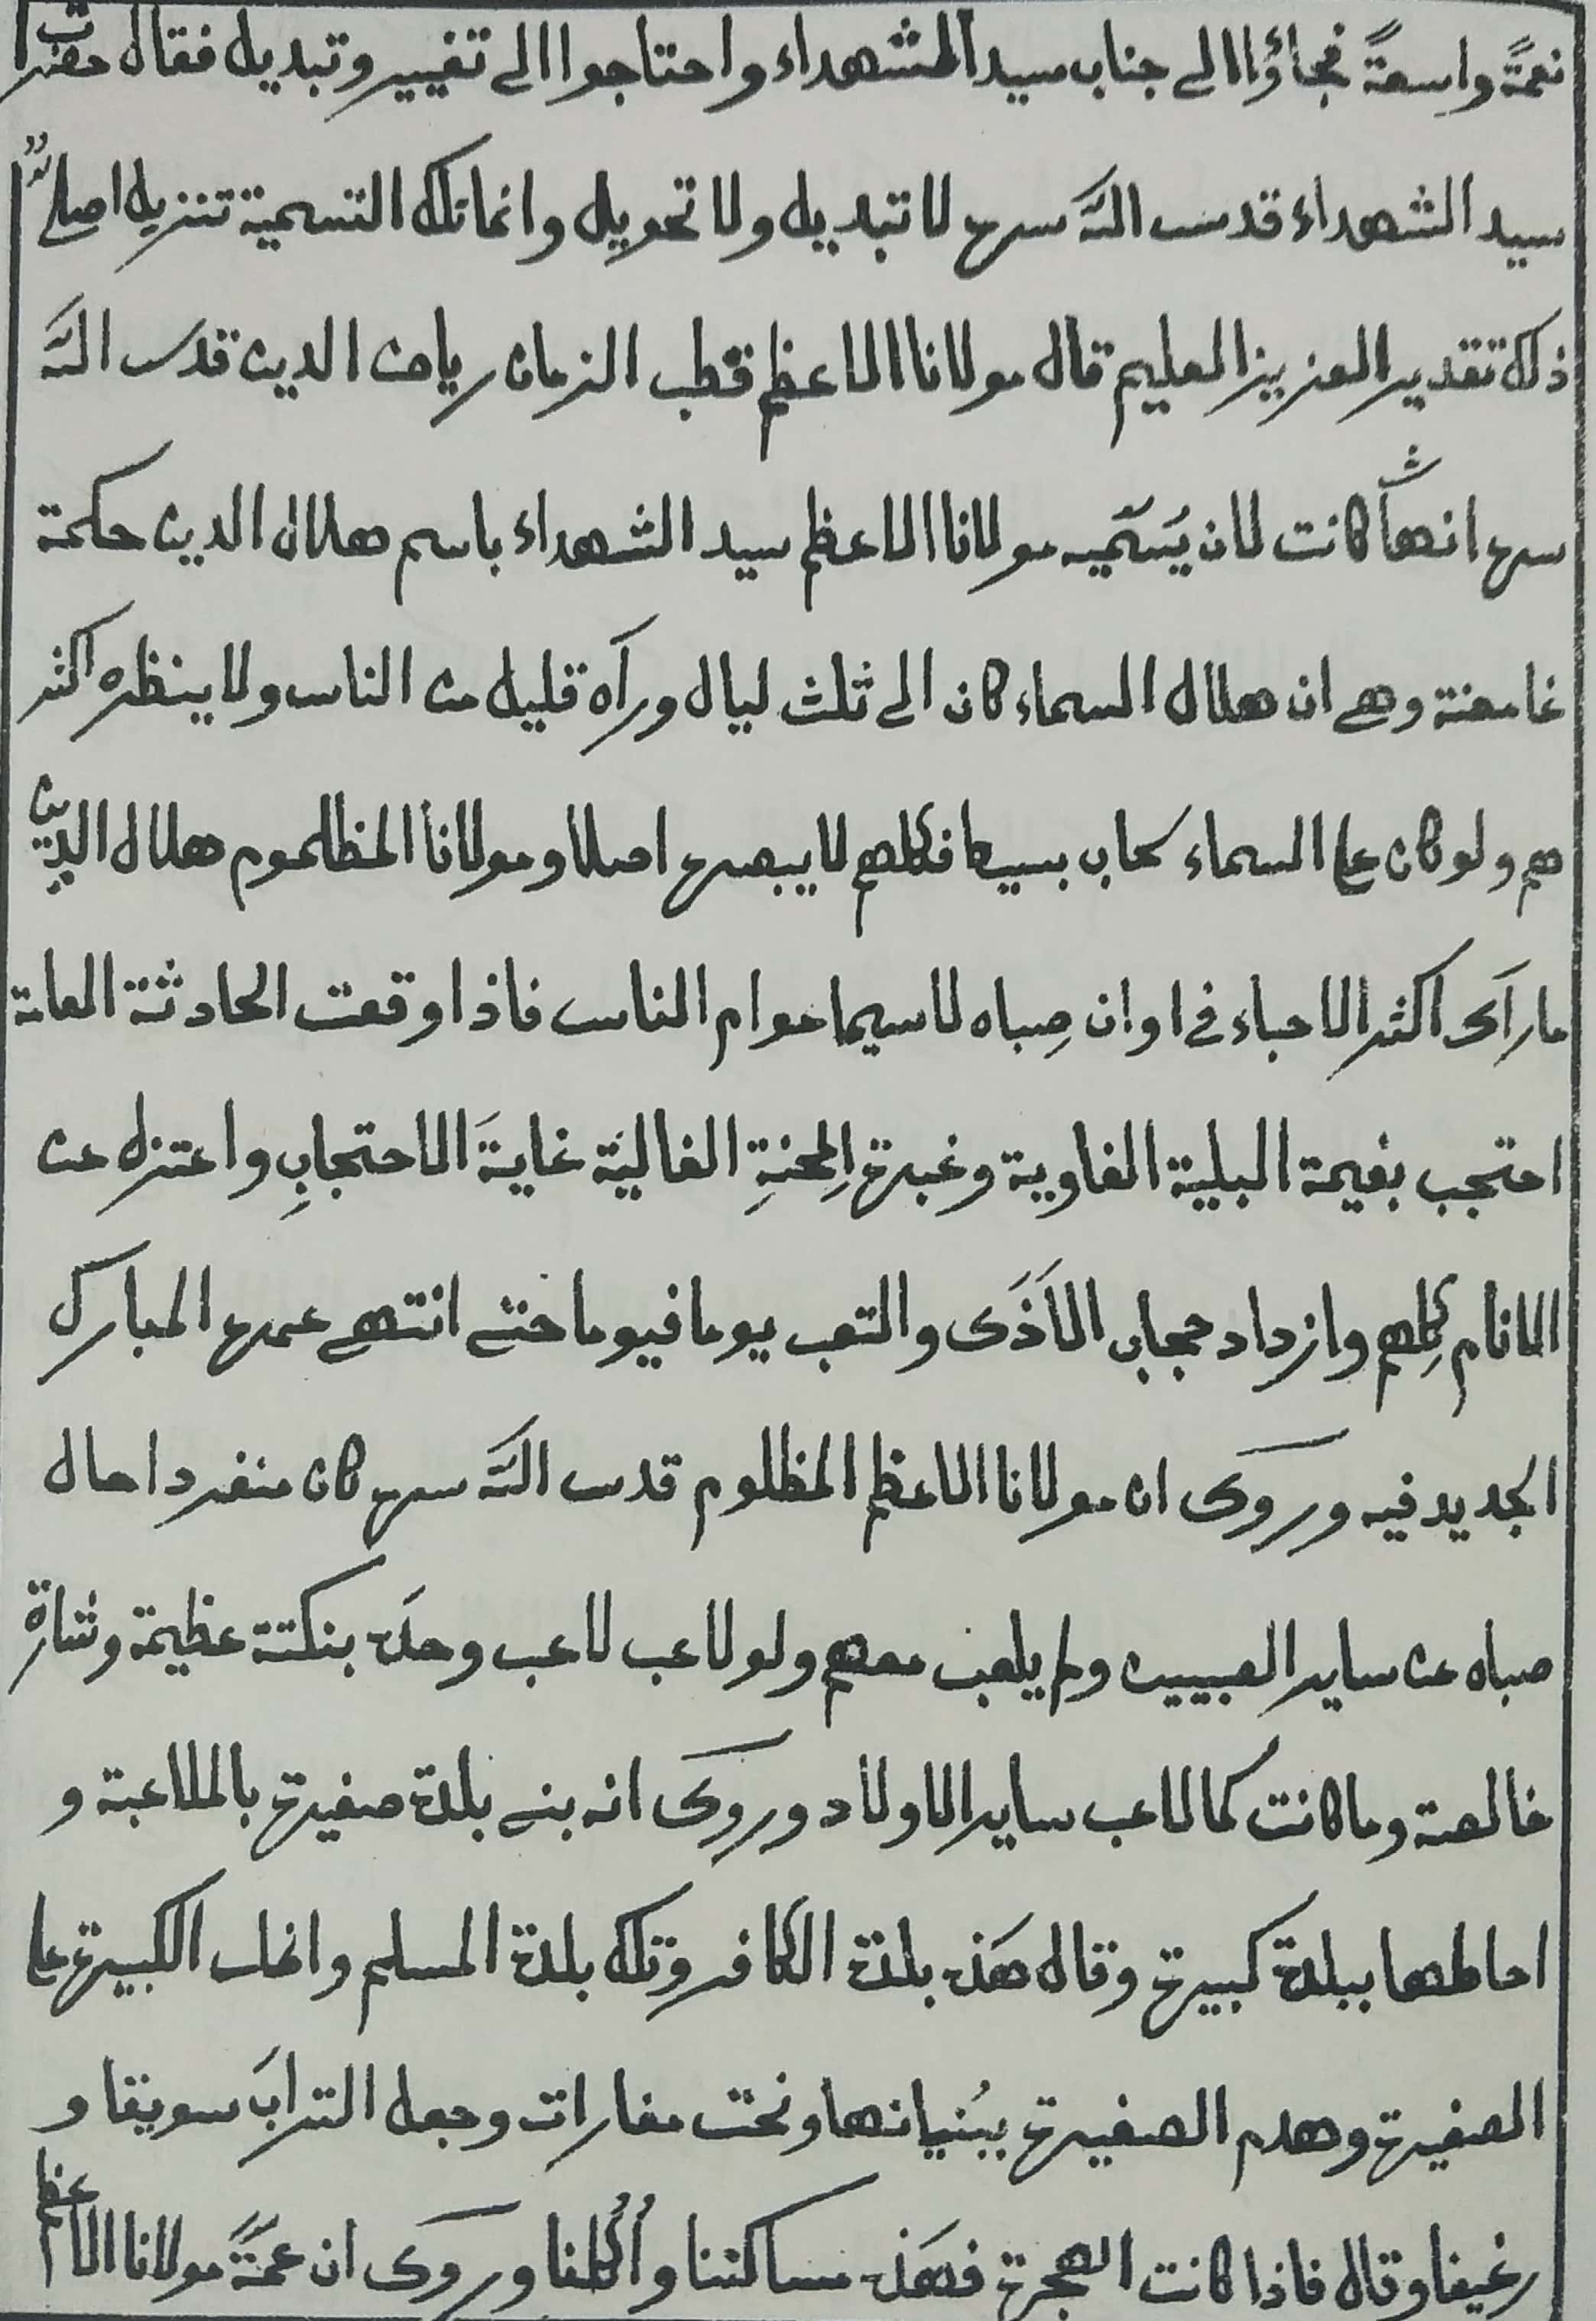 نعمةً واسعةً فجاؤا الى جناب سيد الشهداء واحتاجوا الى تغيير وتبديل فقال حضرت
سيد الشهداء قدس الله سره لا تبديل ولا تحويل وانما تلك التسمية تنزيل اصليٌّ
ذلك تقدير العزيز العليم قال مولانا الاعظم قطب الزمان رياض الدين قدس الله
سره انها كانت لان يَسَمّيه مولانا الاعظم سيد الشهداء باسم هلال الدين حكمة
غامضة وهي ان هلال السماء كان الى ثلث ليال ورآه قليل من الناس ولا ينظره اكثر
هم ولو كان على السماء سحاب بسيط فكلهم لا يبصره اصلا ومولانا المظلموم هلال الدين
ما رآى اكثر الاحباء في اوان صِباه لاسيما عوام الناس فاذا وقعت الحادثة العامة
احتجب بغيمة البلية الغاوية وغبرة المِحنةِ الغالية غايةَ الاحتجابِ واعتزل عن
الانام كلِهم وازداد حجاب الاَذَى والتعب يوما فيوما حتى انتهى عمره المبارك
الجديد فيه وروى ان مولانا الاعظم المظلوم قدس الله سره كان منفردا حال
صباه عن ساير الصبيين ولم يلعب معهم ولو لاعب لاعب وحده بنكتة عظيمة وشارة
خالصة وما كانت كما لاعب ساير الاولاد وروى انه بنى بلدة صغيرة بالملاعبة و
احاطها ببلدة كبيرة وقال هَذه بلدة الكافر وتلك بلدة المسلم وانحاس الكبيرة على
الصغيرة وهدم الصغيرة ببُنيانها ونحت مغارات وجعل الترابَ سويقا و
رغيفا وقال فاذا كانت الهجرة فهَذه مساكننا واُكُلنا وروى ان عمةً مولانا الاعظم